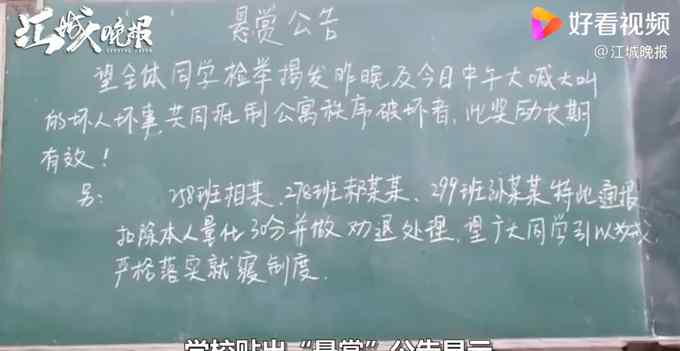 江城晚报
好看视频
@江城晚报
悬赏公告
望全体同学检举揭发昨晚及今日中午大喊大叫
的坏人坏事,共同抵制公寓秩序破坏者,此奖励长期
有效!
另: 258班相某、278班郝某某、299班孙某某特此通报,
扣除本人量化30分并做劝退处理,望广大同学引以为戒,
严格落实就寝制度.
学校贴出“悬赏”公告显示